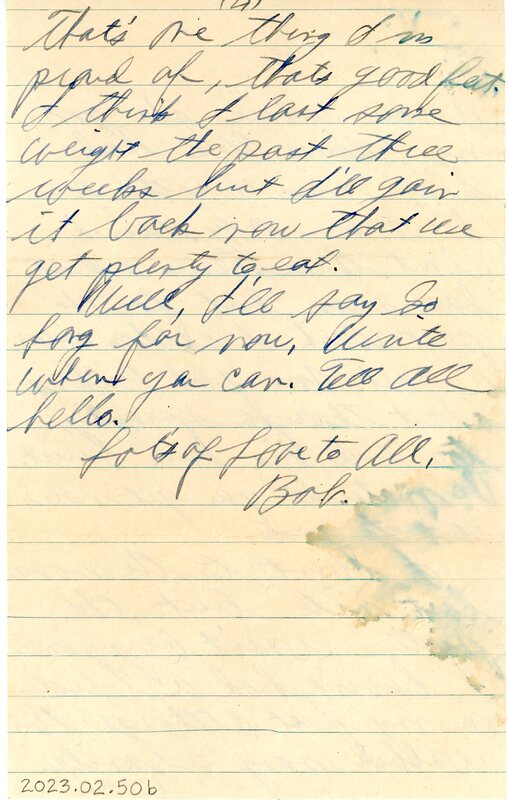 (4)
That's one thing I'm
proud of, thats good
I think I lost some
weight the past three
weeks but I'll gain
it back now that we
get plenty to eat.
Well, I'll say So
long for now, Write
when you can. Tell All
hello.
Lots of Love to All,
Bob.
2023.02.50b